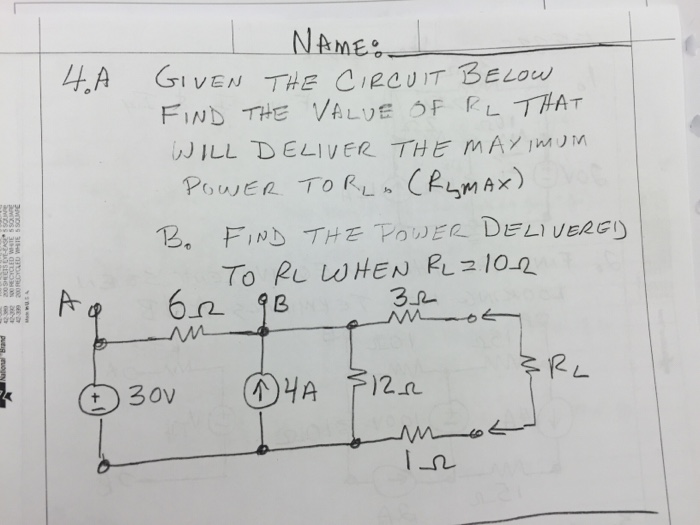 NAME:
4.A GIVEN THE CIRCUIT BELOW
FIND THE VALUE OF RL THAT
WILL DELIVER THE MAXIMUM
POWER TO RL. (RL,MAX)
B. FIND THE POWER DELIVERED
TO RL WHEN RL = 10Ω
A 6Ω B 3Ω
+ - 30V ↑ 4A 12Ω RL
1Ω
National Brand